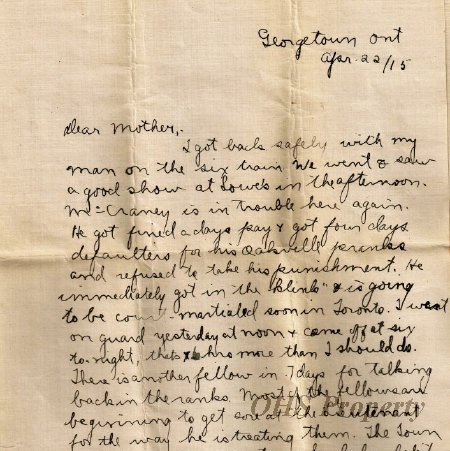 Georgetown Ont
Apr. 22/15
Dear Mother,.
I got back safely with my
man on the six train. We went & saw
a good show at Lowes in the afternoon.
McCraney is in trouble here again.
He got fined a days pay & got four days
defaulters for his Oakville pranks
and refused to take his punishment. He
immediately got in the "Klink" & is going
to be court martialed soon in Toronto. I went
on guard yesterday at noon & came off at six
to-night, thats hrs more than I should do.
There is another fellow in 7 days for talking
back in the ranks. Most the fellows are
beginning to get sore at the lieutenant
for the way he is treating them. The Town
OHS Property